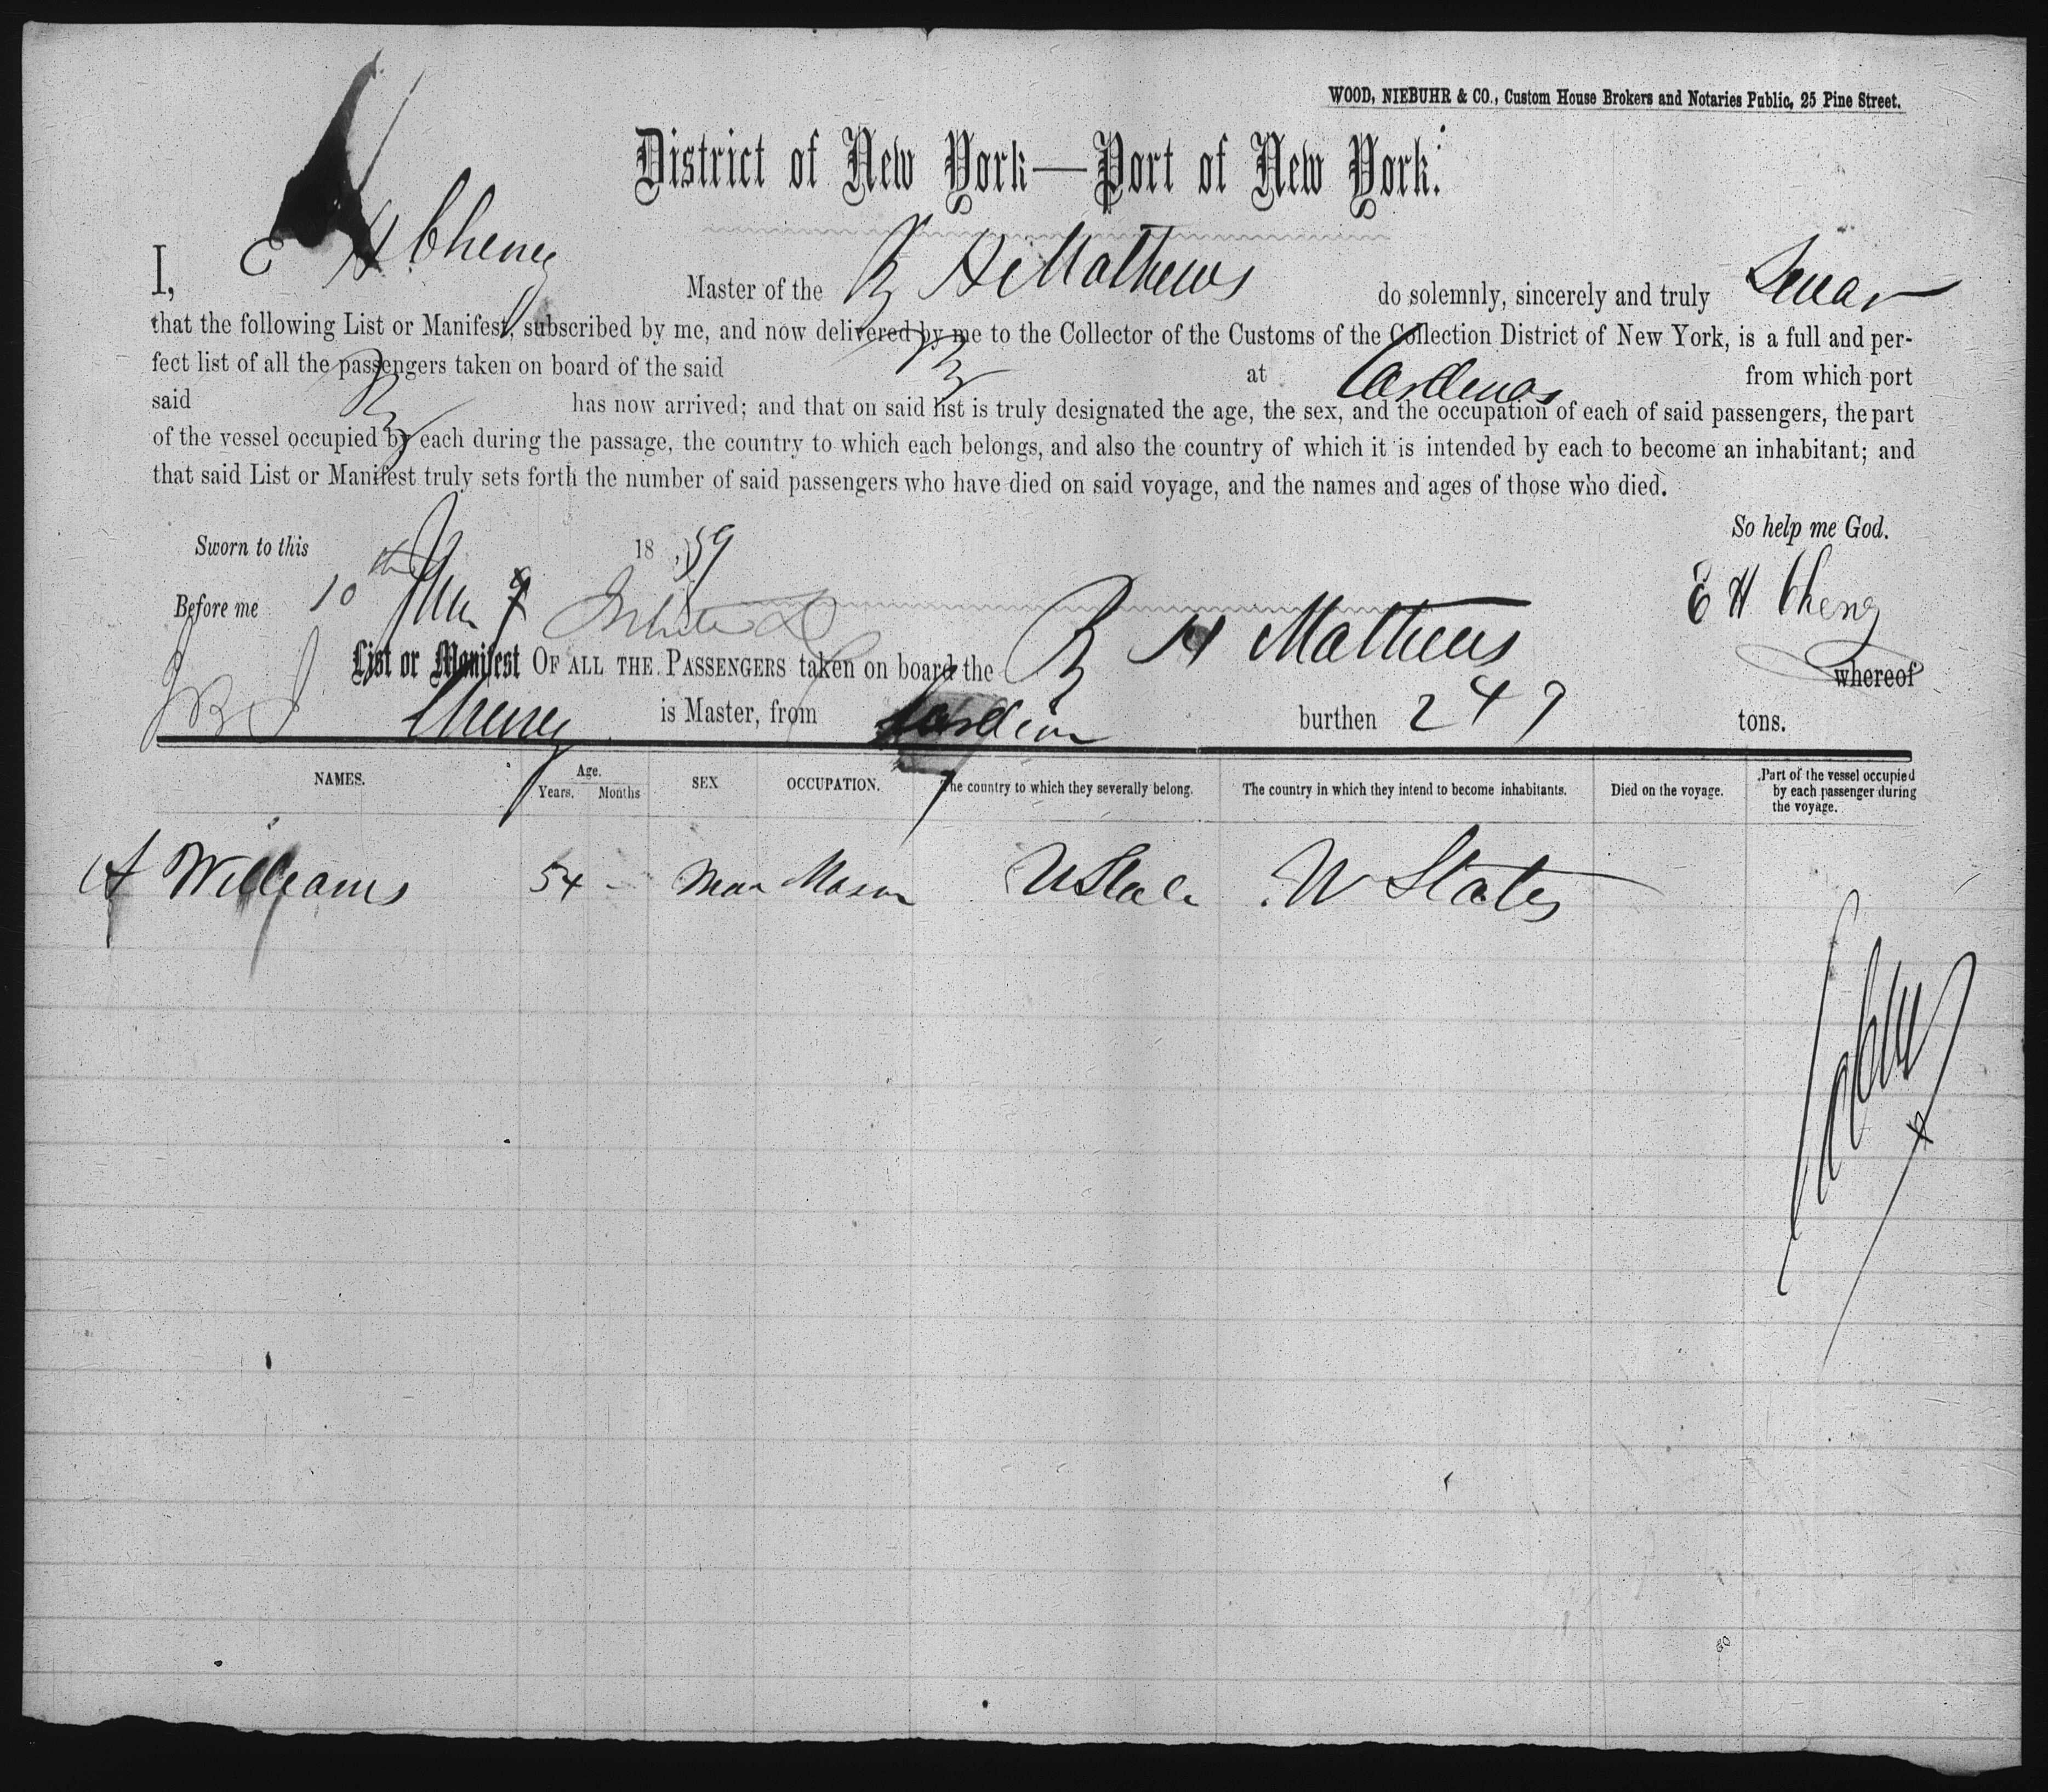 WOOD, NIEBUHR & CO., Custom House Brokers and Notaries Public, 25 Pine Street.
District of New York—Port of New York.
I, E H Cheney Master of the H Mathews do solemnly, sincerely and truly Swear
that the following List or Manifest, subscribed by me, and now delivered by me to the Collector of the Customs of the Collection District of New York, is a full and per-
fect list of all the passengers taken on board of the said at Cardenas from which port
said has now arrived; and that on said list is truly designated the age, the sex, and the occupation of each of said passengers, the part
of the vessel occupied by each during the passage, the country to which each belongs, and also the country of which it is intended by each to become an inhabitant; and
that said List or Manifest truly sets forth the number of said passengers who have died on said voyage, and the names and ages of those who died.
So help me God.
Sworn to this 10th 1859
Before me E H Cheney
List or Manifest OF ALL THE PASSENGERS taken on board the H Mathews whereof
Cheney is Master, from burthen 249 tons.
NAMES. Age. Years. Months SEX OCCUPATION. The country to which they severally belong. The country in which they intend to become inhabitants. Died on the voyage. Part of the vessel occupied by each passenger during the voyage.
A Williams 54 - Man Mason U State U States